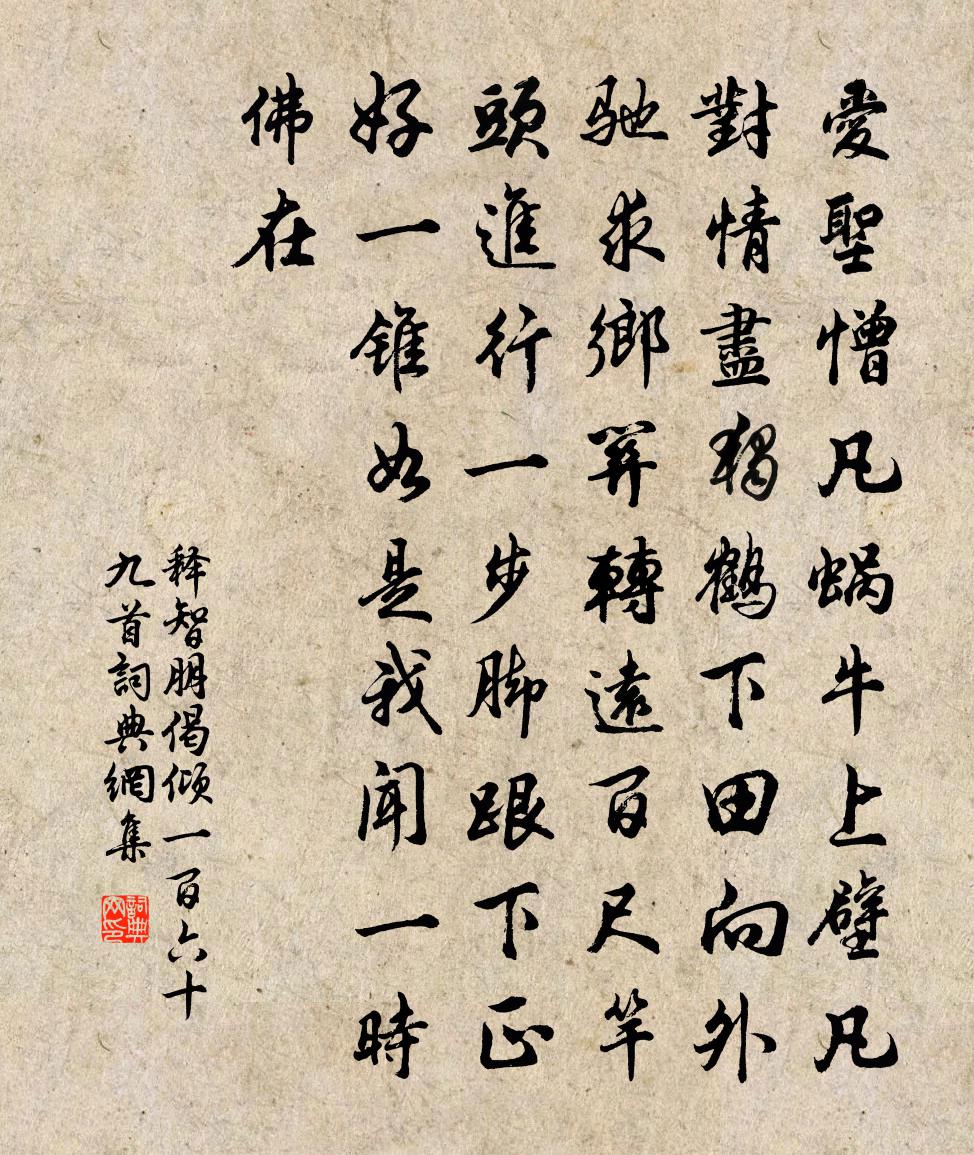 愛聖憎凡蝸牛上壁凡
對情盡獨鶴下田向外
馳求鄉關轉遠百尺竿
頭進行一步脚跟下正
好一錐如是我聞一時
佛在
释智朋偈傾一百六十
九首詞典網集
詞典網印